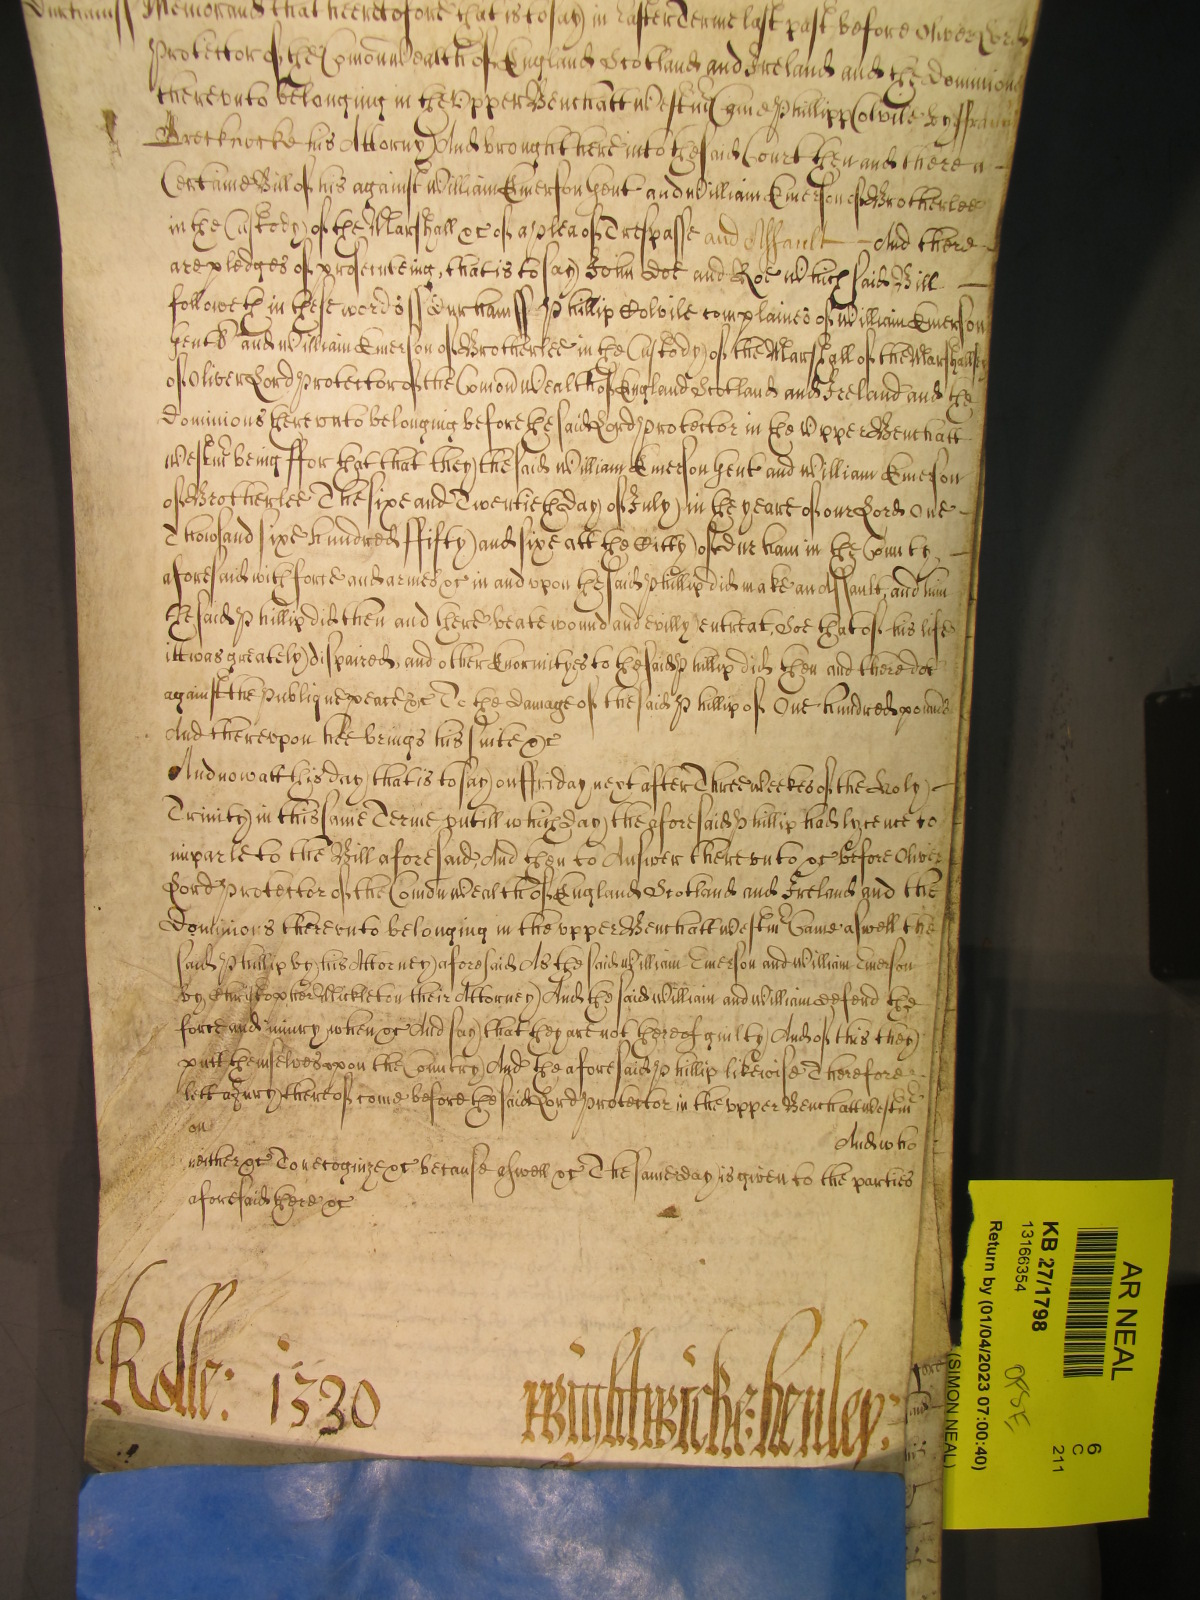 Durham ss Memorand that heeretofore that is to say in Easter Terme last past before Oliver Lord
Protector of the Comonwealth of England Scotland and Ireland and the Dominions
therevnto belonging in the Vpper Bench att Westmr Came Phillipp Colvile by ffrancis
Brecknocke his Attorny And brought here into the said Court then and there a
Certaine Bill of his against William Emerson gent and William Emerson of Brotherlee
in the Custody of the Marshall &c of a plea of Trespasse and Assault And there
are pledges of prosecuteing, that is to say John Doe and Roe Which said Bill
followeth in these words ss Durham ss Phillip Colvile complaines of William Emerson
gent and William Emerson of Brotherlee in the Custody of the Marshall of the Marshallsey
of Oliver Lord Protector of the Comonwealth of England Scotland and Ireland and the
Dominions therevnto belonging before the said Lord Protector in the Vpper Bench att
Westmr being ffor that that they the said William Emerson gent and William Emerson
of Brotherlee The sixe and Twentieth day of July in the yeare of our Lord One
Thowsand sixe hundred ffifty and sixe att the Citty of Durham in the County
aforesaid with force and armes &c in and vpon the said Phillip did make an Assault, and him
the said Phillip did then and there beate wound and evilly entreat, Soe that of his life
itt was greately dispaired, and other Enormityes to the said Phillip did then and there doe
against the Publique peace &c To the damage of the said Phillip of One hundred pounds
And therevpon hee brings his suite &c
And now att this day that is to say on ffriday next after Three weekes of the Holy
Trinity in this same Terme vntill which day the aforesaid Phillip had lycence to
imparle to the Bill aforesaid And then to Answer therevnto &c before Oliver
Lord Protector of the Comonwealth of England Scotland and Ireland and the
Dominions therevnto belonging in the vpper Bench att Westmr Came aswell the
said Phillip by his Attorney aforesaid As the said William Emerson and William Emerson
by Christopher Mickleton their Attorney And the said William and William defend the
force and iniury when &c And say that they are not thereof guilty And of this they
putt themselves vpon the Country And the aforesaid Phillip likewise Therefore
lett a Jury thereof come before the said Lord Protector in the vpper Bench att Westmr
on And who
neither &c To recognize &c because aswell &c The same day is given to the parties
aforesaid there &c
Rolle: 1330 Wightwicke: henley:
AR NEAL
6
C
211
KB 27/1798
13166354
Return by (01/04/2023 07:00:40)
(SIMON NEAL)